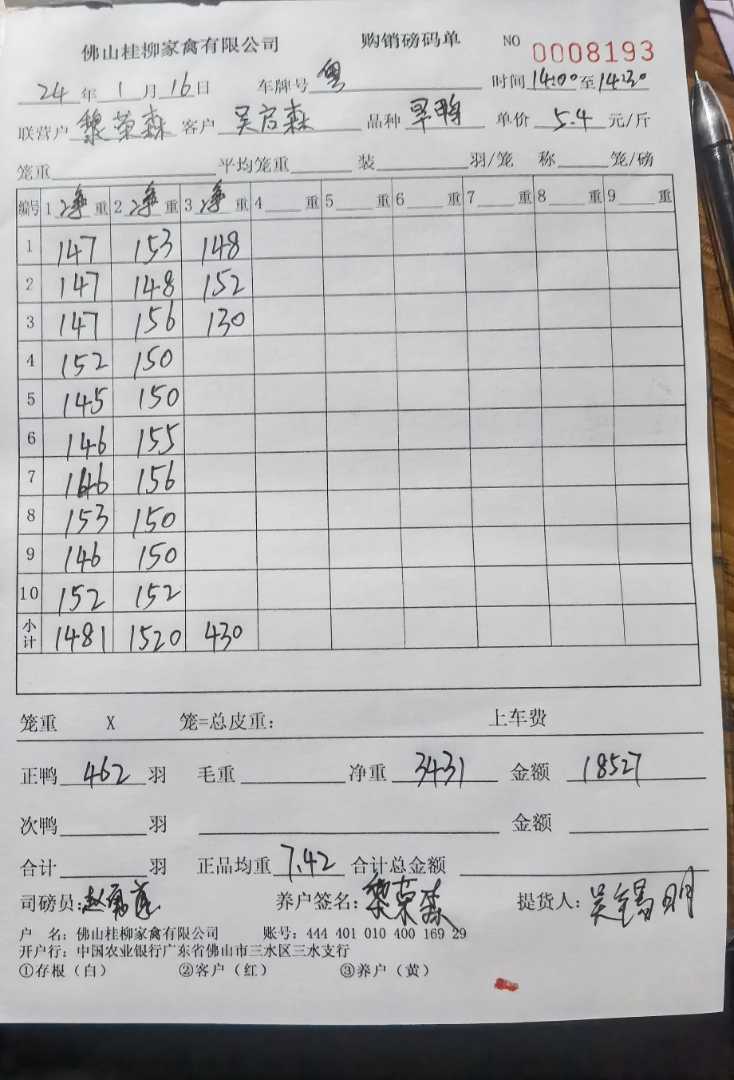 佛山桂柳家禽有限公司 购销磅码单 NO 0008193
24年1月16日 车牌号 粤 时间14:00至14:30
联营户 黎荣森 客户 吴启森 品种 旱鸭 单价 5.4 元/斤
笼重 平均笼重 装 羽/笼 称 笼/磅
编号 1 净 重 2 净 重 3 净 重 4 重 5 重 6 重 7 重 8 重 9 重
1 147 153 148
2 147 148 152
3 147 156 130
4 152 150
5 145 150
6 146 155
7 146 156
8 153 150
9 146 150
10 152 152
小计 1481 1520 430
笼重 X 笼=总皮重: 上车费
正鸭 462 羽 毛重 净重 3431 金额 18527
次鸭 羽 金额
合计 羽 正品均重 7.42 合计总金额
司磅员: 养户签名: 黎荣森 提货人: 吴锡明
户 名: 佛山桂柳家禽有限公司 账号: 444 401 010 400 169 29
开户行: 中国农业银行广东省佛山市三水区三水支行
①存根(白) ②客户(红) ③养户(黄)